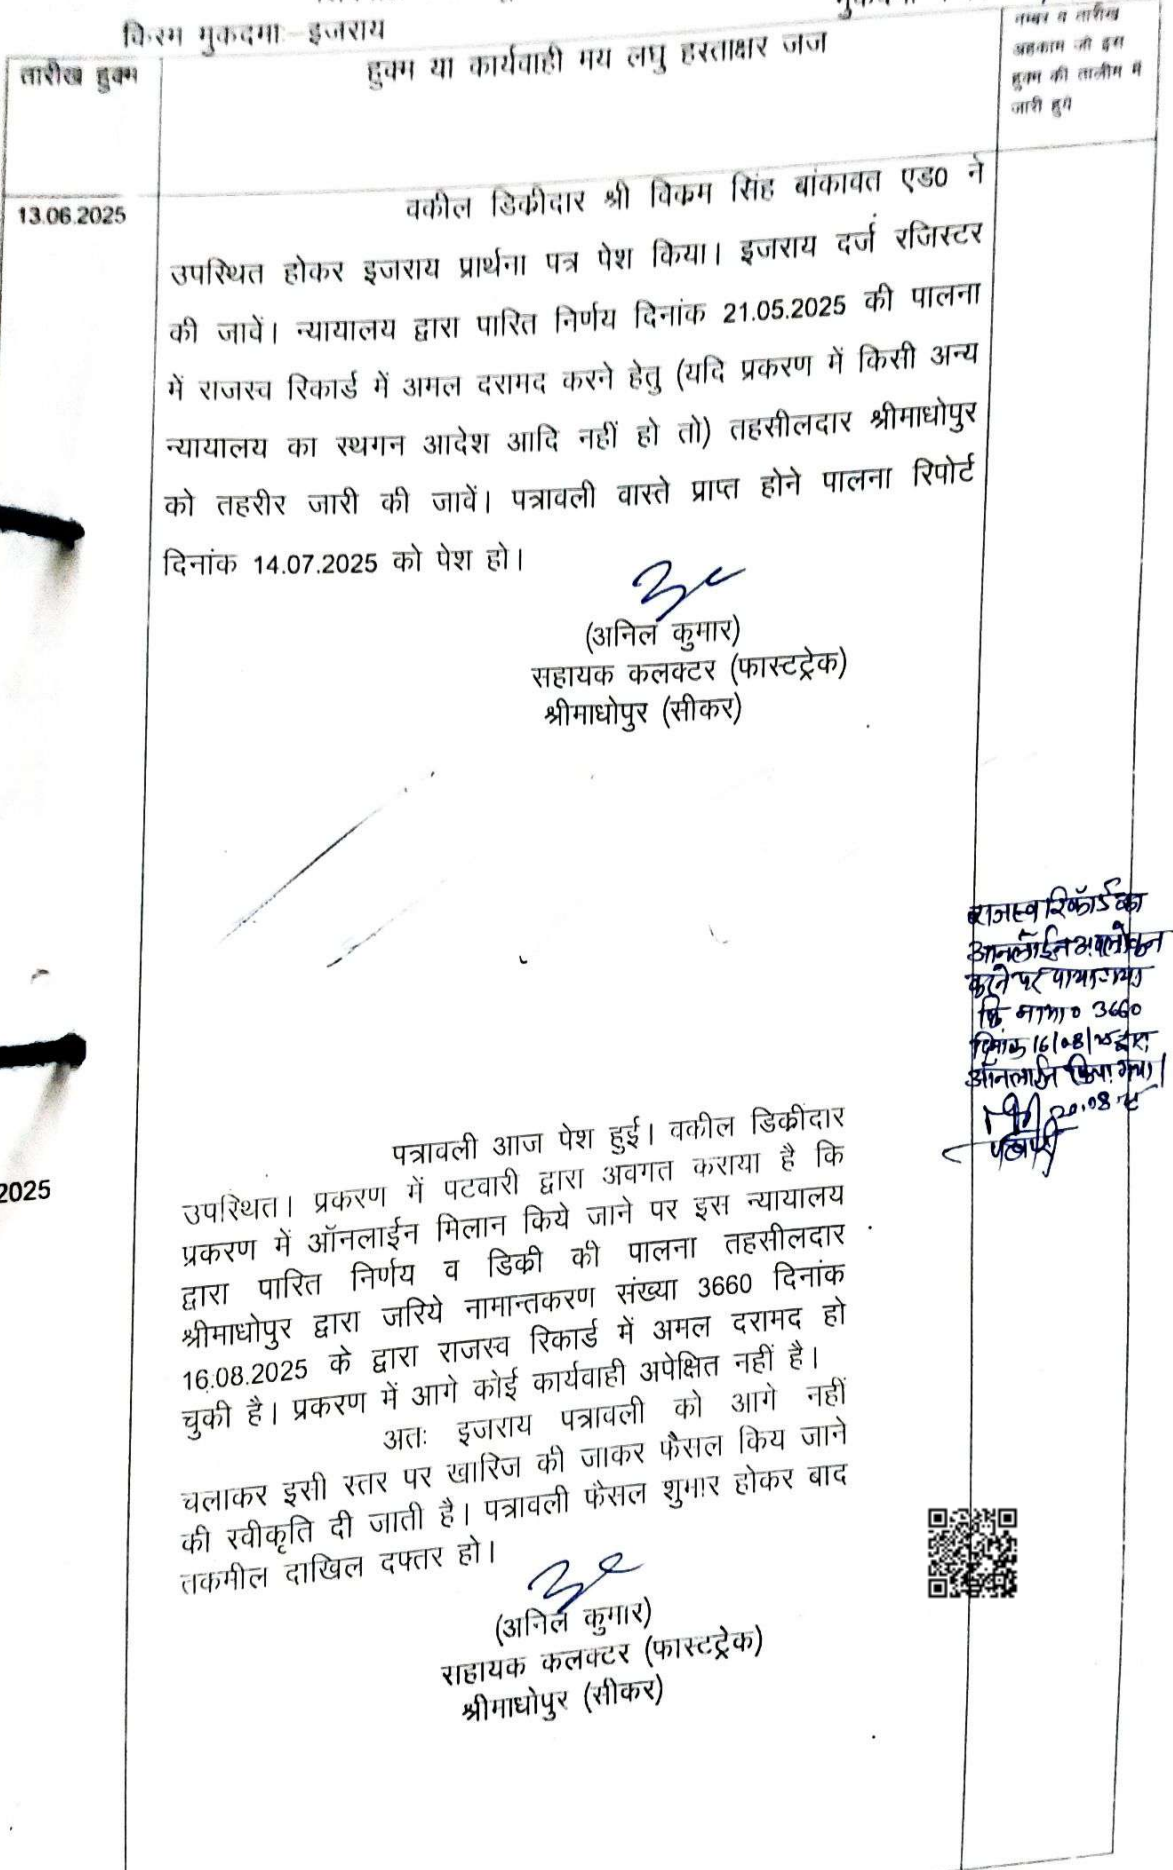 किस्म मुकदमाः– इजराय
तारीख हुक्म
हुक्म या कार्यवाही मय लघु हस्ताक्षर जज
नम्बर व तारीख
अहकाम जो इस
हुक्म की तालीम में
जारी हुये
13.06.2025
वकील डिकीदार श्री विकम सिंह बांकावत एड0 ने
उपस्थित होकर इजराय प्रार्थना पत्र पेश किया। इजराय दर्ज रजिस्टर
की जावें। न्यायालय द्वारा पारित निर्णय दिनांक 21.05.2025 की पालना
में राजस्व रिकार्ड में अमल दरामद करने हेतु (यदि प्रकरण में किसी अन्य
न्यायालय का स्थगन आदेश आदि नहीं हो तो) तहसीलदार श्रीमाधोपुर
को तहरीर जारी की जावें। पत्रावली वास्ते प्राप्त होने पालना रिपोर्ट
दिनांक 14.07.2025 को पेश हो।
(अनिल कुमार)
सहायक कलक्टर (फास्टट्रेक)
श्रीमाधोपुर (सीकर)
राजस्व रिकॉर्ड का
ऑनलाईन अवलोकन
करने पर पाया गया
कि ना0 3660
दिनांक 16/08/25 द्वारा
ऑनलाईन किया गया।
20.08.25
पटवारी
2025
पत्रावली आज पेश हुई। वकील डिकीदार
उपस्थित। प्रकरण में पटवारी द्वारा अवगत कराया है कि
प्रकरण में ऑनलाईन मिलान किये जाने पर इस न्यायालय
द्वारा पारित निर्णय व डिकी की पालना तहसीलदार
श्रीमाधोपुर द्वारा जरिये नामान्तकरण संख्या 3660 दिनांक
16.08.2025 के द्वारा राजस्व रिकार्ड में अमल दरामद हो
चुकी है। प्रकरण में आगे कोई कार्यवाही अपेक्षित नहीं है।
अतः इजराय पत्रावली को आगे नहीं
चलाकर इसी स्तर पर खारिज की जाकर फैसल किय जाने
की स्वीकृति दी जाती है। पत्रावली फैसल शुमार होकर बाद
तकमील दाखिल दफ्तर हो।
(अनिल कुमार)
सहायक कलक्टर (फास्टट्रेक)
श्रीमाधोपुर (सीकर)